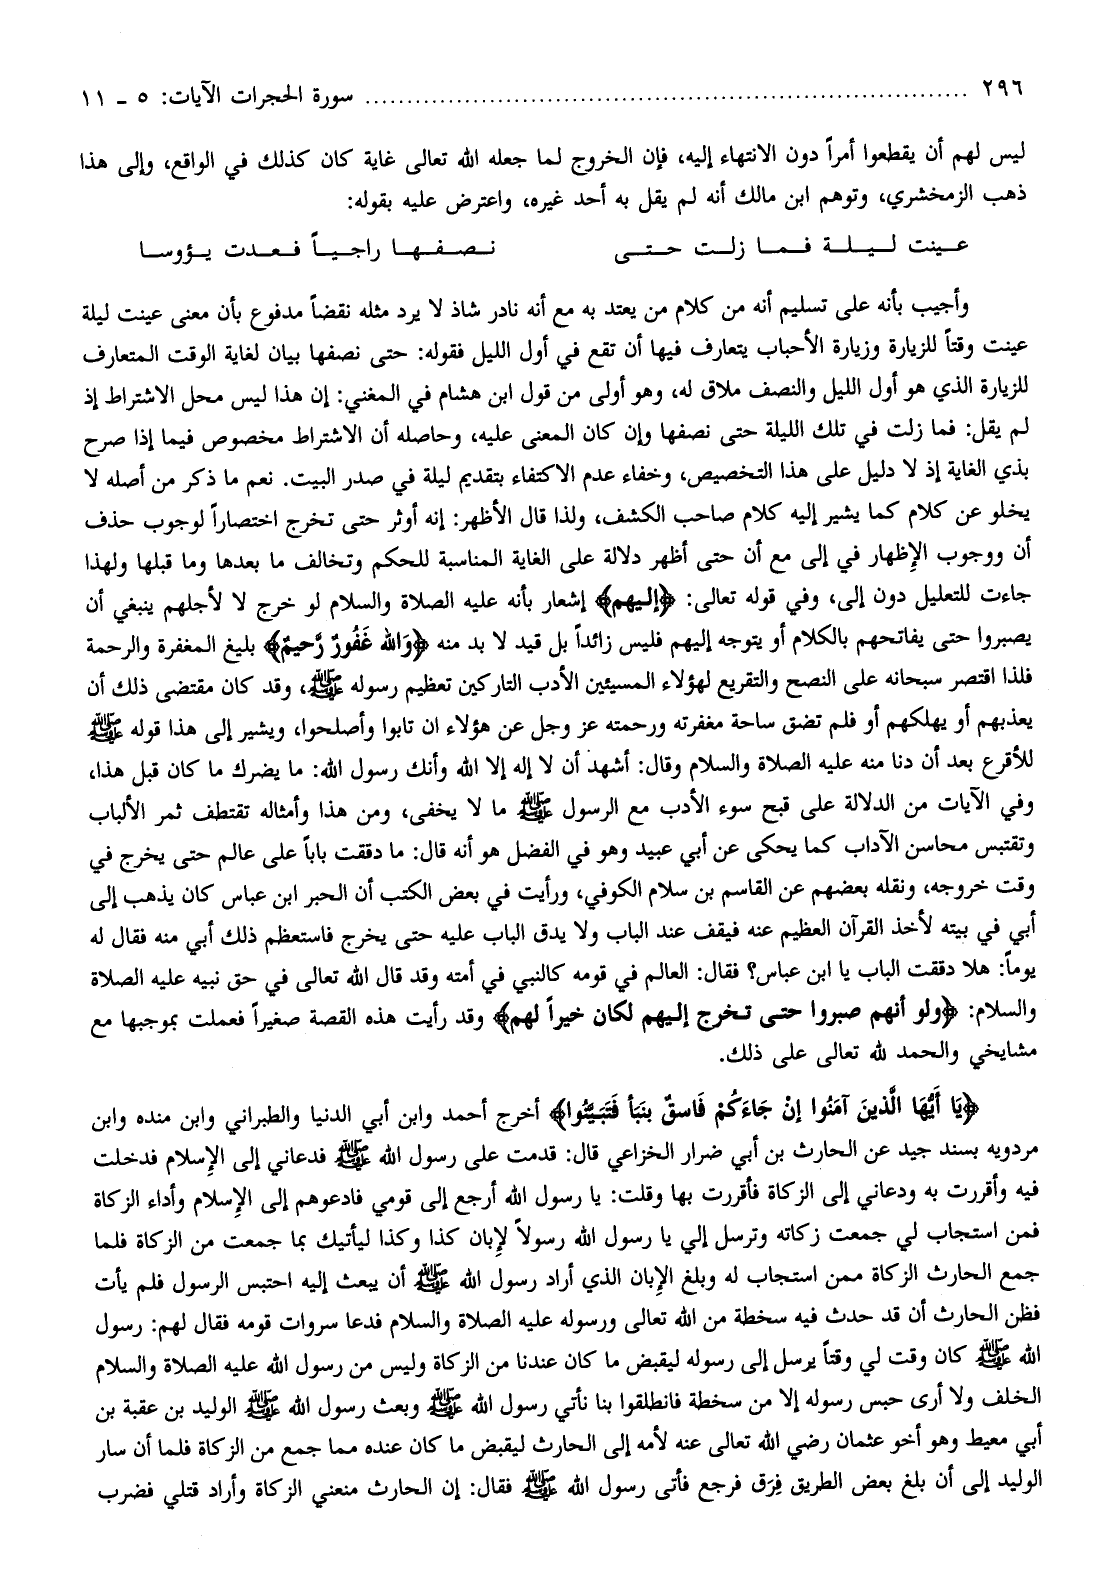 ٢٩٦ ........................................................................ سورة الحجرات الآيات: ٥ ـ ١١
ليس لهم أن يقطعوا أمراً دون الانتهاء إليه، فإن الخروج لما جعله الله تعالى غاية كان كذلك في الواقع، وإلى هذا
ذهب الزمخشري، وتوهم ابن مالك أنه لم يقل به أحد غيره، واعترض عليه بقوله:
عـينت لـيـلـة فـمـا زلـت حـتـى نـصـفـهـا راجـيـاً فـعـدت يـؤوسـا
وأجيب بأنه على تسليم أنه من كلام من يعتد به مع أنه نادر شاذ لا يرد مثله نقضاً مدفوع بأن معنى عينت ليلة
عينت وقتاً للزيارة وزيارة الأحباب يتعارف فيها أن تقع في أول الليل فقوله: حتى نصفها بيان لغاية الوقت المتعارف
للزيارة الذي هو أول الليل والنصف ملاق له، وهو أولى من قول ابن هشام في المغني: إن هذا ليس محل الاشتراط إذ
لم يقل: فما زلت في تلك الليلة حتى نصفها وإن كان المعنى عليه، وحاصله أن الاشتراط مخصوص فيما إذا صرح
بذي الغاية إذ لا دليل على هذا التخصيص، وخفاء عدم الاكتفاء بتقديم ليلة في صدر البيت. نعم ما ذكر من أصله لا
يخلو عن كلام كما يشير إليه كلام صاحب الكشف، ولذا قال الأظهر: إنه أوثر حتى تخرج اختصاراً لوجوب حذف
أن ووجوب الإِظهار في إلى مع أن حتى أظهر دلالة على الغاية المناسبة للحكم وتخالف ما بعدها وما قبلها ولهذا
جاءت للتعليل دون إلى، وفي قوله تعالى: ﴿إليهم﴾ إشعار بأنه عليه الصلاة والسلام لو خرج لا لأجلهم ينبغي أن
يصبروا حتى يفاتحهم بالكلام أو يتوجه إليهم فليس زائداً بل قيد لا بد منه ﴿وَالله غَفُورٌ رَّحيمٌ﴾ بليغ المغفرة والرحمة
فلذا اقتصر سبحانه على النصح والتقريع لهؤلاء المسيئين الأدب التاركين تعظيم رسوله ﷺ، وقد كان مقتضى ذلك أن
يعذبهم أو يهلكهم أو فلم تضق ساحة مغفرته ورحمته عز وجل عن هؤلاء ان تابوا وأصلحوا، ويشير إلى هذا قوله ﷺ
للأقرع بعد أن دنا منه عليه الصلاة والسلام وقال: أشهد أن لا إله إلا الله وأنك رسول الله: ما يضرك ما كان قبل هذا،
وفي الآيات من الدلالة على قبح سوء الأدب مع الرسول ﷺ ما لا يخفى، ومن هذا وأمثاله تقتطف ثمر الألباب
وتقتبس محاسن الآداب كما يحكى عن أبي عبيد وهو في الفضل هو أنه قال: ما دققت باباً على عالم حتى يخرج في
وقت خروجه، ونقله بعضهم عن القاسم بن سلام الكوفي، ورأيت في بعض الكتب أن الحبر ابن عباس كان يذهب إلى
أبي في بيته لأخذ القرآن العظيم عنه فيقف عند الباب ولا يدق الباب عليه حتى يخرج فاستعظم ذلك أبي منه فقال له
يوماً: هلا دققت الباب يا ابن عباس؟ فقال: العالم في قومه كالنبي في أمته وقد قال الله تعالى في حق نبيه عليه الصلاة
والسلام: ﴿ولو أنهم صبروا حتى تخرج إليهم لكان خيراً لهم﴾ وقد رأيت هذه القصة صغيراً فعملت بموجبها مع
مشايخي والحمد لله تعالى على ذلك.
﴿يَا أَيُّهَا الَّذينَ آمَنُوا إنْ جَاءَكُمْ فَاسقٌ بنَبَأ فَتَبَيَّنُوا﴾ أخرج أحمد وابن أبي الدنيا والطبراني وابن منده وابن
مردويه بسند جيد عن الحارث بن أبي ضرار الخزاعي قال: قدمت على رسول الله ﷺ فدعاني إلى الإِسلام فدخلت
فيه وأقررت به ودعاني إلى الزكاة فأقررت بها وقلت: يا رسول الله أرجع إلى قومي فادعوهم إلى الإِسلام وأداء الزكاة
فمن استجاب لي جمعت زكاته وترسل إلي يا رسول الله رسولاً لإِبان كذا وكذا ليأتيك بما جمعت من الزكاة فلما
جمع الحارث الزكاة ممن استجاب له وبلغ الإِبان الذي أراد رسول الله ﷺ أن يبعث إليه احتبس الرسول فلم يأت
فظن الحارث أن قد حدث فيه سخطة من الله تعالى ورسوله عليه الصلاة والسلام فدعا سروات قومه فقال لهم: رسول
الله ﷺ كان وقت لي وقتاً يرسل إلى رسوله ليقبض ما كان عندنا من الزكاة وليس من رسول الله عليه الصلاة والسلام
الخلف ولا أرى حبس رسوله إلا من سخطة فانطلقوا بنا نأتي رسول الله ﷺ وبعث رسول الله ﷺ الوليد بن عقبة بن
أبي معيط وهو أخو عثمان رضي الله تعالى عنه لأمه إلى الحارث ليقبض ما كان عنده مما جمع من الزكاة فلما أن سار
الوليد إلى أن بلغ بعض الطريق فِرَق فرجع فأتى رسول الله ﷺ فقال: إن الحارث منعني الزكاة وأراد قتلي فضرب